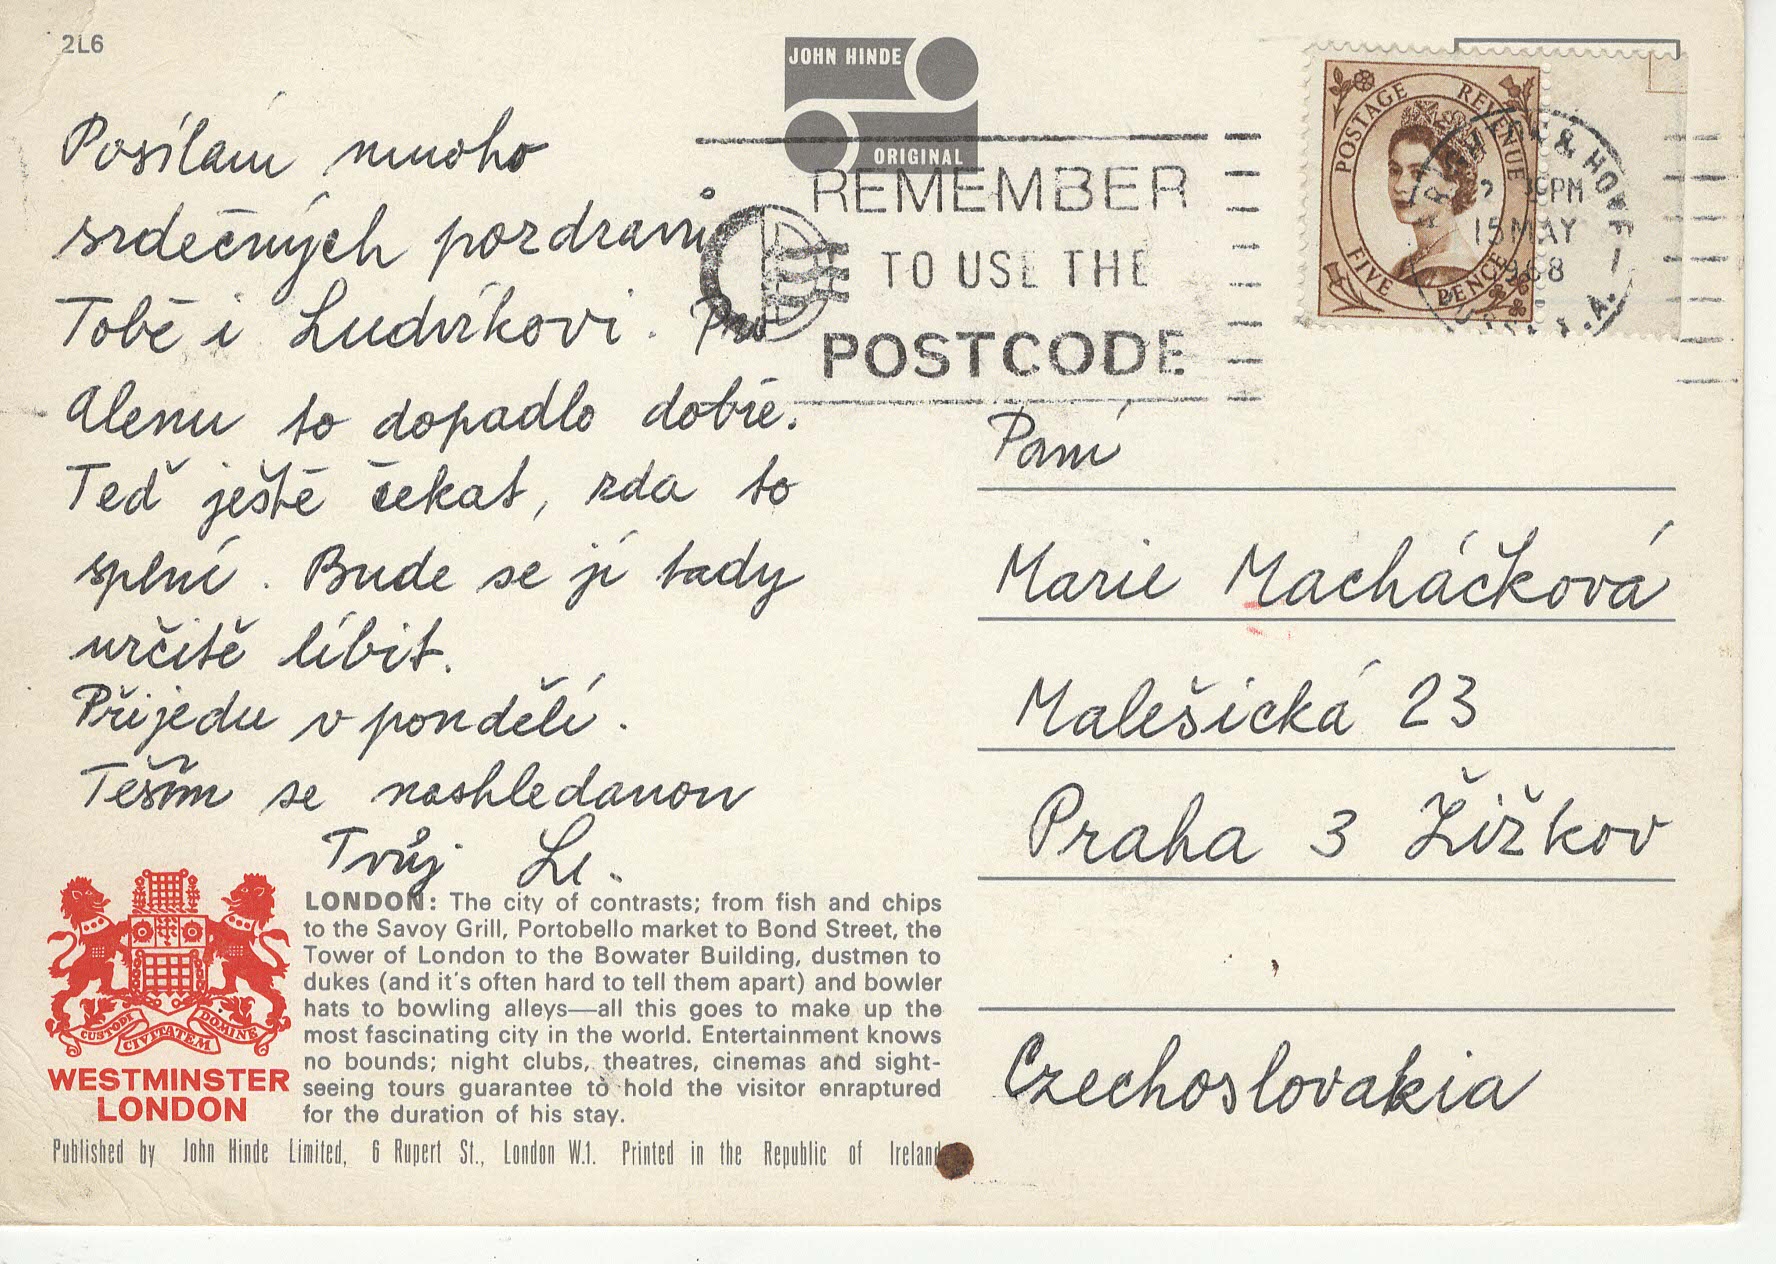 2L6
JOHN HINDE
ORIGINAL
Posílám mnoho
srdečných pozdravů
Tobě i Ludvíkovi. Pro
Alenu to dopadlo dobře.
Teď ještě čekat, zda to
splní. Bude se jí tady
určitě líbit.
Přijedu v pondělí.
Těším se nashledanou
Tvůj
REMEMBER
TO USE THE
POSTCODE
POSTAGE REVENUE
FIVE PENCE
BRIGHTON & HOVE
PM
15 MAY
1968
Paní
Marie Macháčková
Malešická 23
Praha 3 Žižkov
Czechoslovakia
CUSTODI CIVITATEM DOMINE
WESTMINSTER
LONDON
LONDON: The city of contrasts; from fish and chips
to the Savoy Grill, Portobello market to Bond Street, the
Tower of London to the Bowater Building, dustmen to
dukes (and it's often hard to tell them apart) and bowler
hats to bowling alleys—all this goes to make up the
most fascinating city in the world. Entertainment knows
no bounds; night clubs, theatres, cinemas and sight-
seeing tours guarantee to hold the visitor enraptured
for the duration of his stay.
Published by John Hinde Limited, 6 Rupert St., London W.1. Printed in the Republic of Ireland